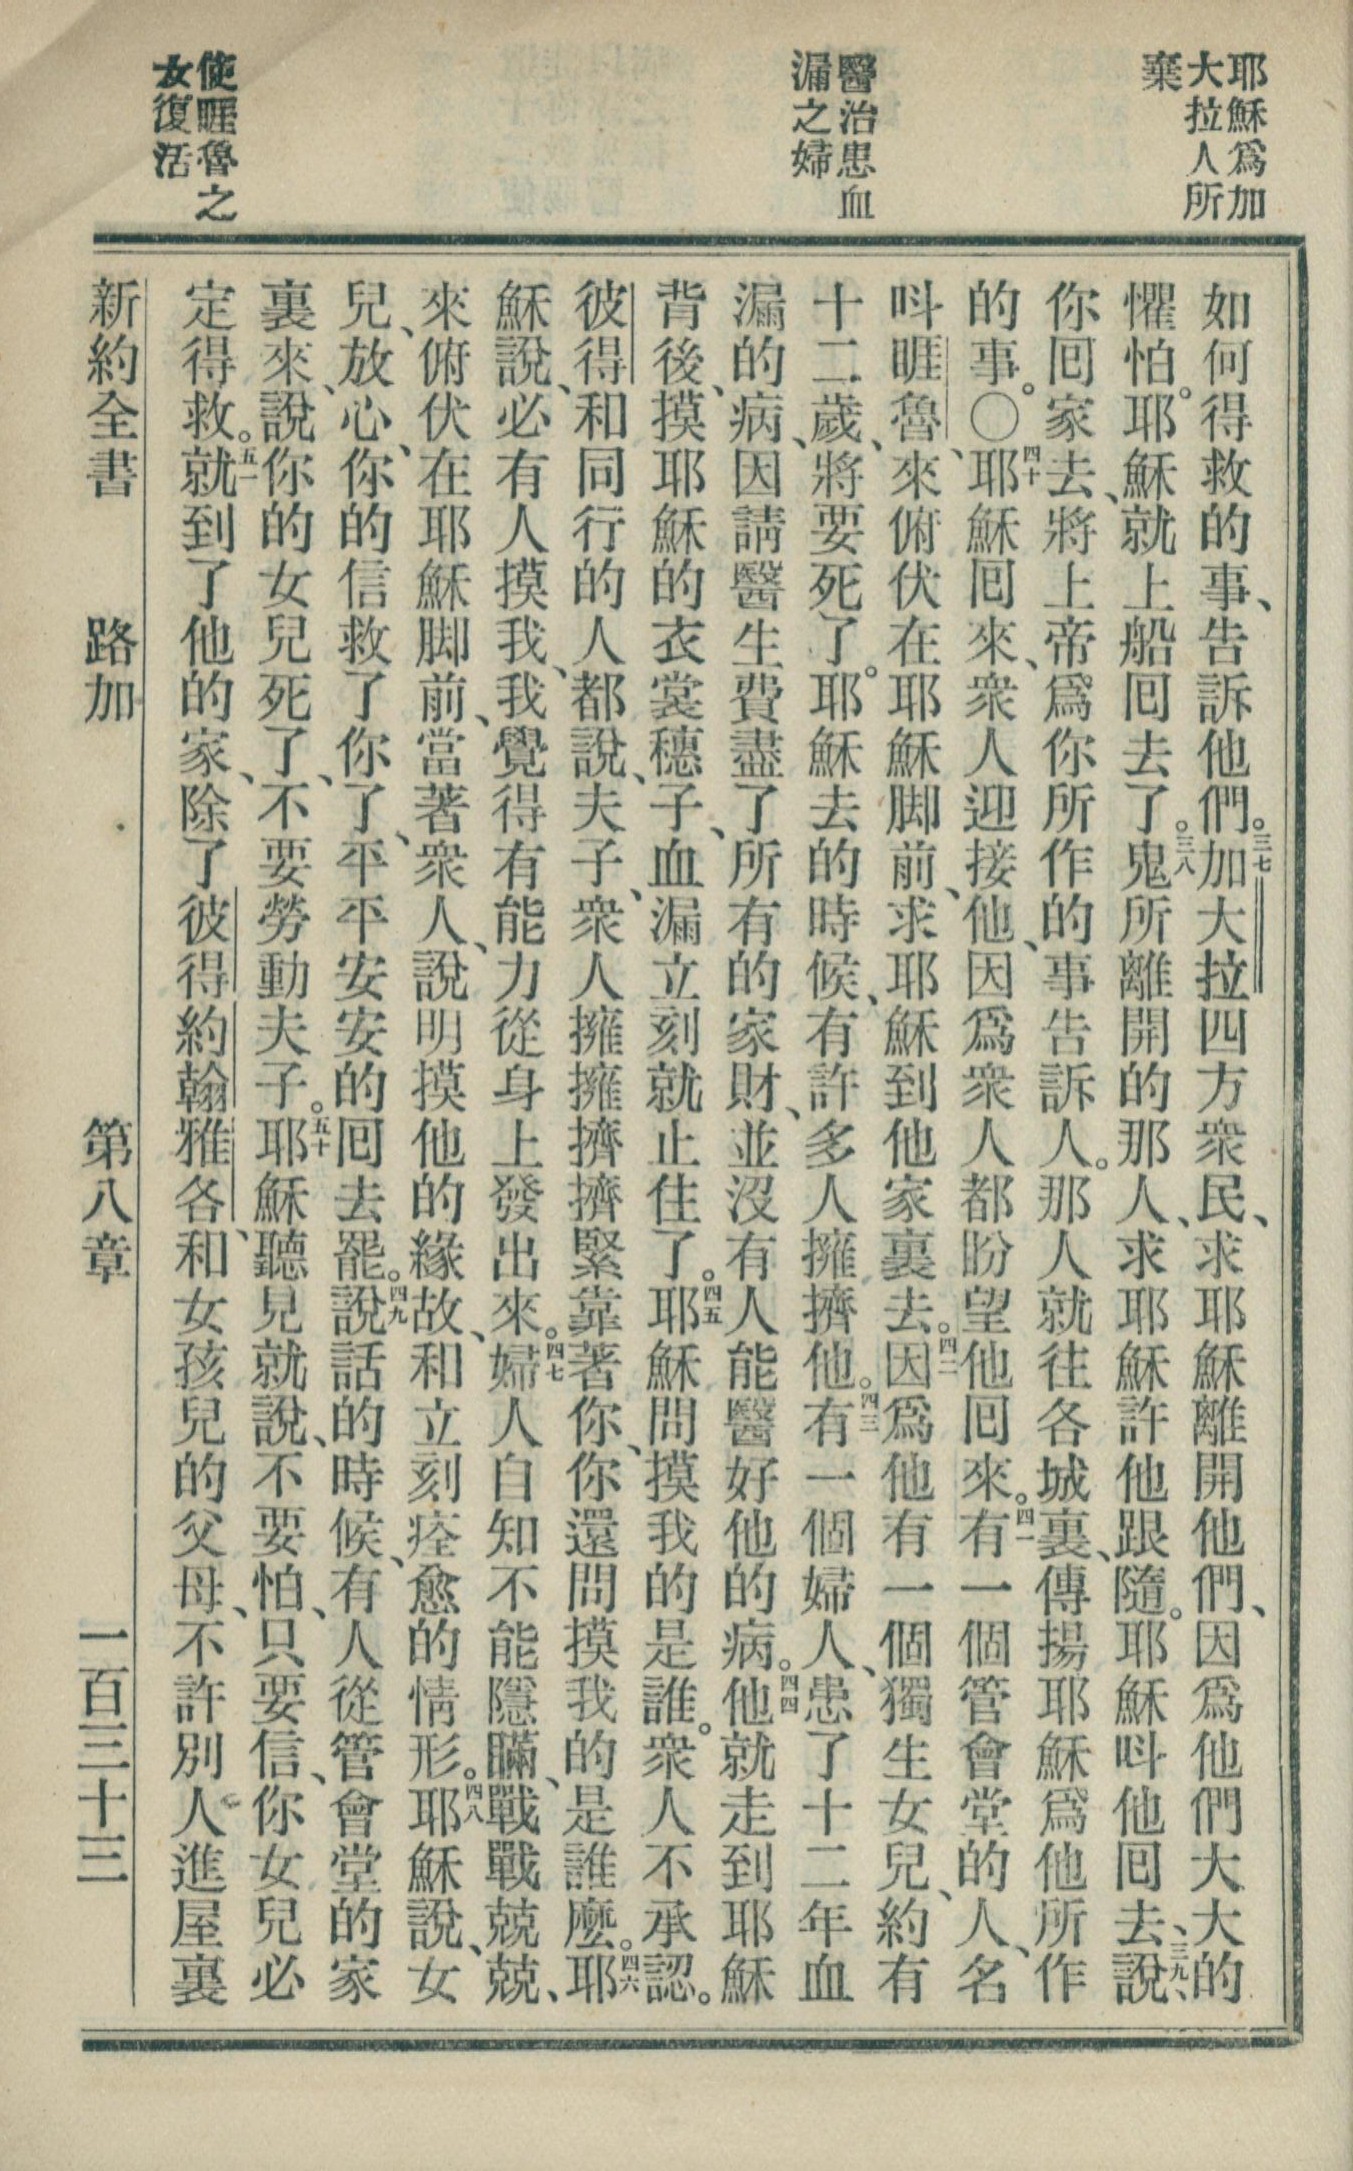 耶穌爲加
大拉人所
棄
醫治患血
漏之婦
使睚魯之
女復活
如何得救的事、告訴他們。三七加大拉四方衆民、求耶穌離開他們、因爲他們大大的
懼怕。耶穌就上船囘去了。三八鬼所離開的那人、求耶穌許他跟隨。耶穌呌他囘去、說、三九
你囘家去、將上帝爲你所作的事告訴人。那人就往各城裏、傳揚耶穌爲他所作
的事。〇四十耶穌囘來、衆人迎接他、因爲衆人都盼望他囘來。四一有一個管會堂的人、名
呌睚魯、來俯伏在耶穌脚前、求耶穌到他家裏去。四二因爲他有一個獨生女兒、約有
十二歲、將要死了。耶穌去的時候、有許多人擁擠他。四三有一個婦人、患了十二年血
漏的病、因請醫生費盡了所有的家財、並沒有人能醫好他的病。四四他就走到耶穌
背後、摸耶穌的衣裳穗子、血漏立刻就止住了。四五耶穌問摸我的是誰。衆人不承認。
彼得和同行的人都說、夫子、衆人擁擁擠擠緊靠著你、你還問摸我的是誰麼。四六耶
穌說、必有人摸我、我覺得有能力從身上發出來。四七婦人自知不能隱瞞、戰戰兢兢、
來俯伏在耶穌脚前、當著衆人、說明摸他的緣故、和立刻痊愈的情形。四八耶穌說、女
兒、放心、你的信救了你了、平平安安的囘去罷。四九說話的時候、有人從管會堂的家
裏來、說、你的女兒死了、不要勞動夫子。五十耶穌聽見就說、不要怕、只要信、你女兒必
定得救。五一就到了他的家、除了彼得約翰雅各、和女孩兒的父母、不許別人進屋裏
新約全書　路加　第八章　一百三十三